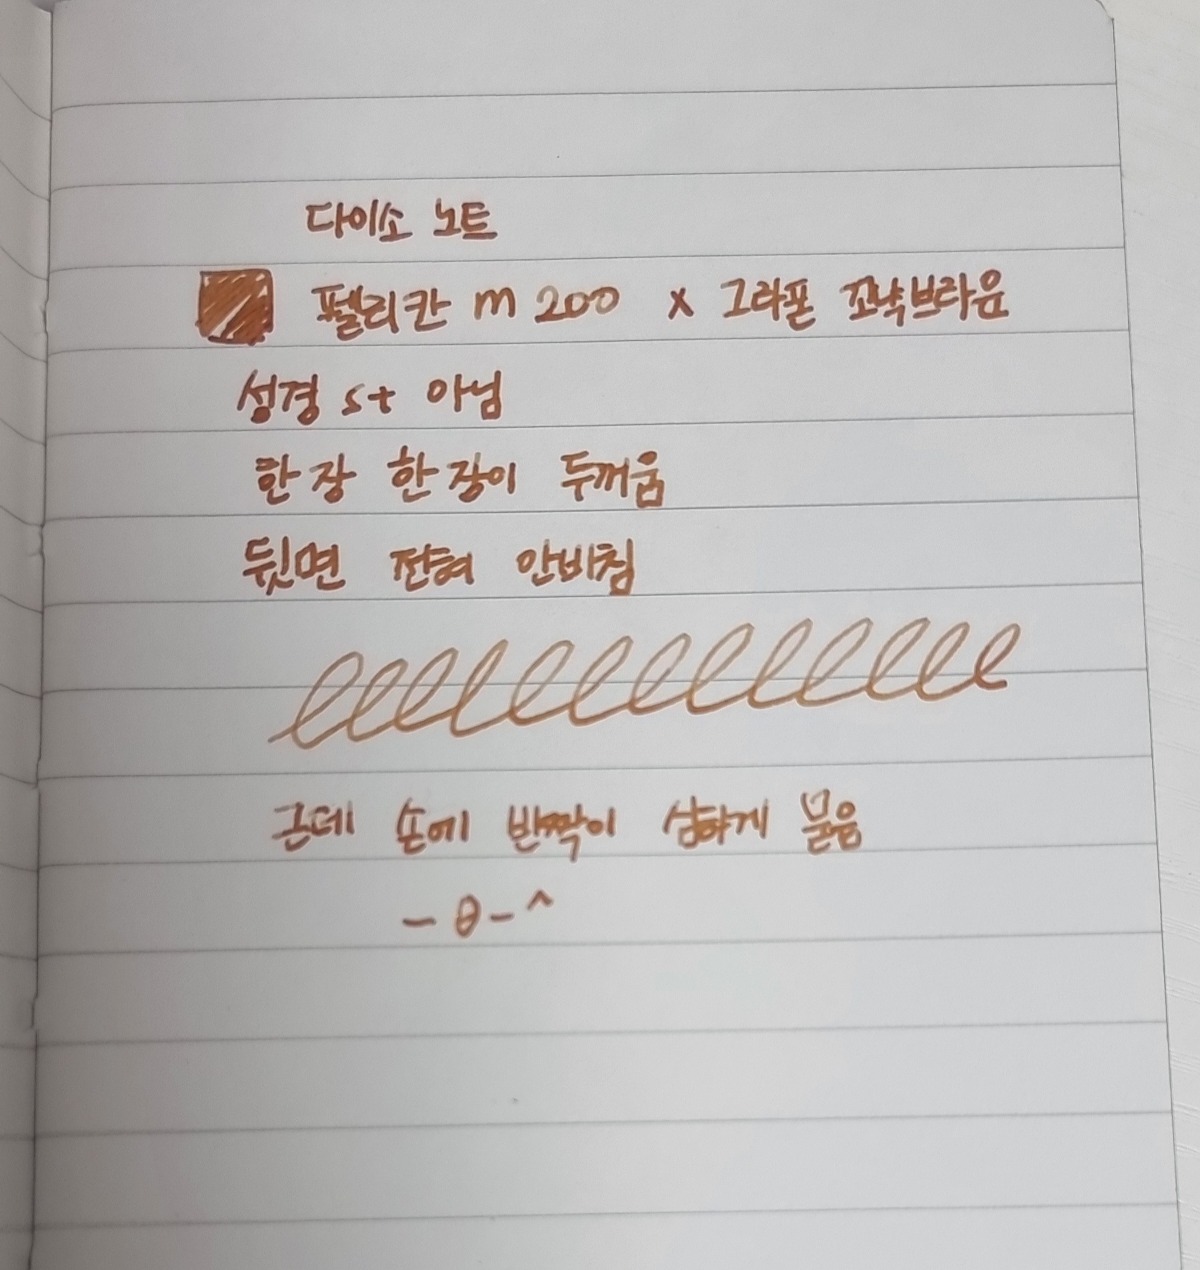 다이소 노트
펠리칸 m 200 x 그라폰 꼬냑브라운
성경 st 아님
한장 한장이 두꺼움
뒷면 전혀 안비침
근데 손에 반짝이 심하게 묻음
- θ - ^